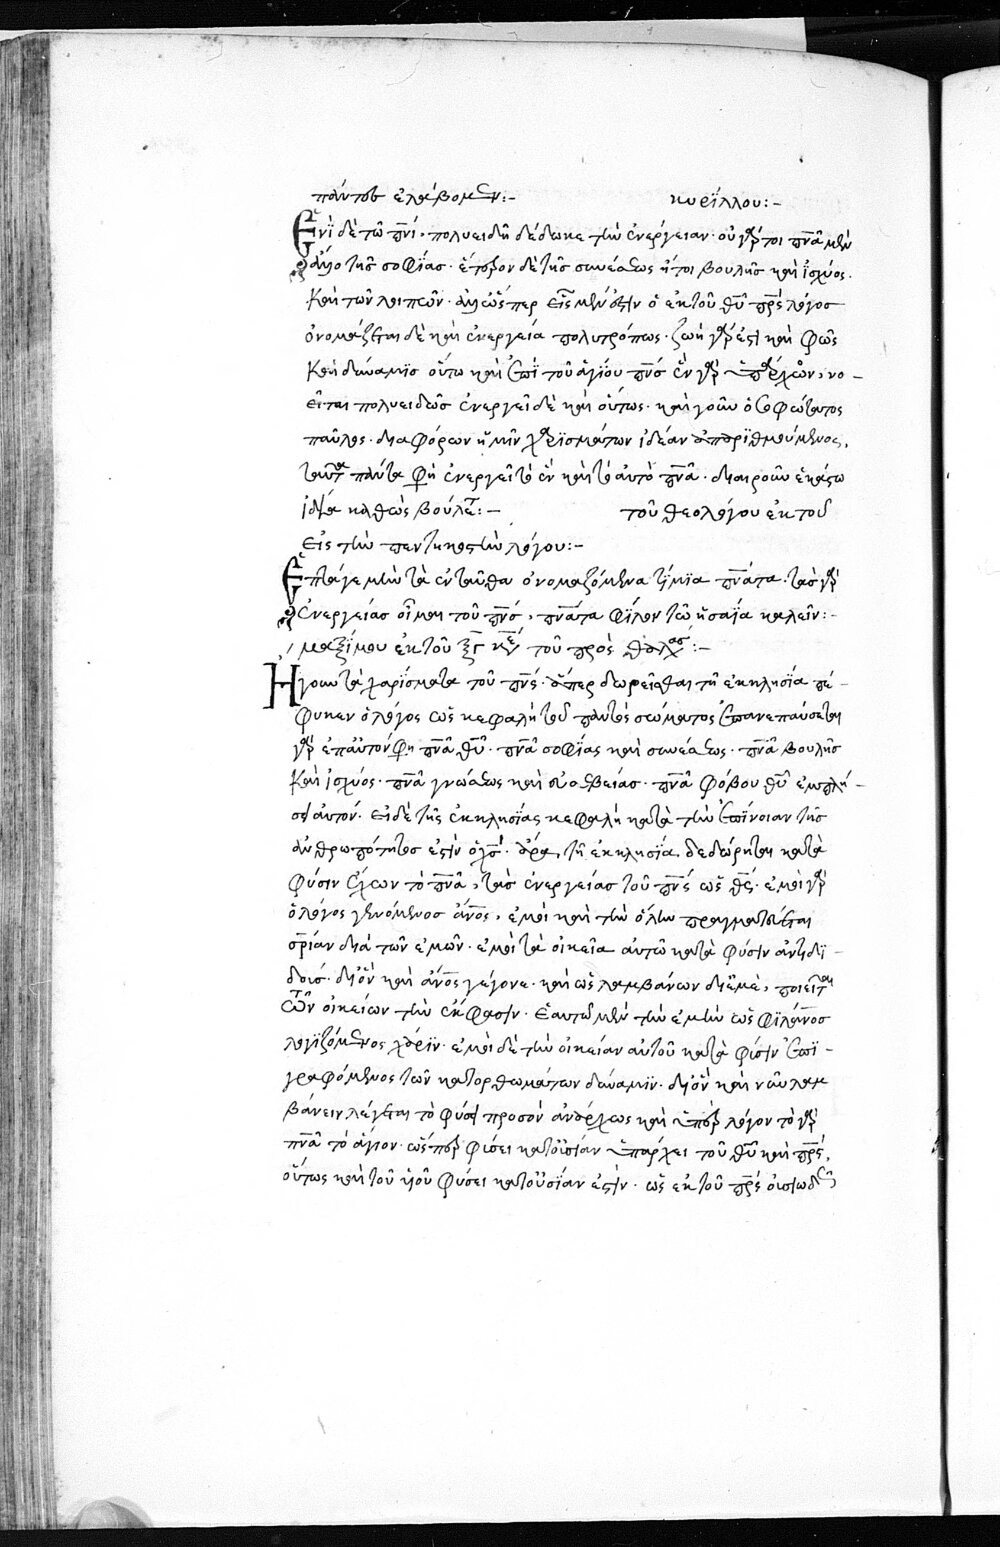 πάντες ἐλάβομεν:- κυρίλλου:-
Ἑνὶ δὲ τῶ πνι, πολυειδῆ δέδωκε τὴν ἐνέργειαν· οὐ γάρ τοι πνα μὲν
ἄλλο τῆς σοφίας· ἕτερον δὲ τῆς συνέσεως ἤτοι βουλῆς καὶ ἰσχύος·
Καὶ τῶν λοιπῶν· ἀλλ' ὥσπερ εἷς μέν ἐστιν ὁ ἐκ τοῦ θυ πρς λόγος
ὀνομάζεται δὲ καὶ ἐνεργεία πολυτρόπως· ζωὴ γάρ ἐστι καὶ φῶς
Καὶ δύναμις οὕτω καὶ ἐπὶ τοῦ ἁγίου πνς ἓν γὰρ ὑπάρχων, νο-
εῖται πολυειδῶς ἐνεργεῖ δὲ καὶ οὕτως· καὶ γοῦν ὁ σοφώτατος
παῦλος· διαφόρων ἡμῖν χαρισμάτων ἰδέαν ἀπαριθμούμενος,
ταῦτα πάντα φησὶ ἐνεργεῖ τὸ ἓν καὶ τὸ αὐτὸ πνα· διαιροῦν ἑκάστω
ἰδία καθὼς βούλεται:- τοῦ θεολόγου ἐκ τοῦ
Εἰς τὴν πεντηκοστὴν λόγου:-
Ἔπαγε μὴν τὰ ἐνταῦθα ὀνομαζόμενα τίμια πνατα· τὰς γὰρ
ἐνεργείας οἶμαι τοῦ πνς, πνατα φίλον τῶ ἡσαΐα καλεῖν:-
μαξίμου ἐκ τοῦ ξγ κε τοῦ πρὸς θαλασ:-
Ἤγουν τὰ χαρίσματα τοῦ πνς· ἅπερ δωρεῖσθαι τῆ ἐκκλησία πέ-
φυκεν ὁ λόγος ὡς κεφαλὴ τοῦ παντὸς σώματος ἐπανεπαύσεται
γὰρ ἐπ' αὐτὸν φησὶ πνα θυ· πνα σοφίας καὶ συνέσεως· πνα βουλῆς
Καὶ ἰσχύος· πνα γνώσεως καὶ εὐσεβείας· πνα φόβου θυ ἐμπλή-
σει αὐτόν· εἰ δὲ τῆς ἐκκλησίας κεφαλὴ κατὰ τὴν ἐπίνοιαν τῆς
ἀνθρωπότητος ἐστὶν ὁ χς· ἄρα τῆ ἐκκλησία δεδώρηται κατὰ
φύσιν ἔχων τὸ πνα, τὰς ἐνεργείας τοῦ πνς ὡς θς· ἐμοὶ γὰρ
ὁ λόγος γενόμενος ανος, ἐμοὶ καὶ τὴν ὅλην πραγματεύεται
σριαν διὰ τῶν ἐμῶν· ἐμοὶ τὰ οἰκεῖα αὐτῶ κατὰ φύσιν ἀντιδι-
δούς· δι' ὃν καὶ ανος γέγονε· καὶ ὡς λαμβάνων δι' ἐμὲ, ποιεῖται
τῶν οἰκείων τὴν ἔκφασιν· ἑαυτῶ μὲν τὴν ἐμὴν ὡς φιλανος
λογιζόμενος χάριν· ἐμοὶ δὲ τὴν οἰκείαν αὐτοῦ κατὰ φύσιν ἐπι-
γραφόμενος τῶν κατορθωμάτων δύναμιν· δι' ὃν καὶ νῦν λαμ
βάνειν λέγεται τὸ φύσει προσὸν ἀνάρχως καὶ ὑπὲρ λόγον τὸ γὰρ
πνα τὸ ἅγιον· ὥσπερ φύσει κατ' οὐσίαν ὑπάρχει τοῦ θυ καὶ πρς,
οὕτως καὶ τοῦ υἱοῦ φύσει κατ' οὐσίαν ἐστὶν· ὡς ἐκ τοῦ πρς οὐσιωδῶς